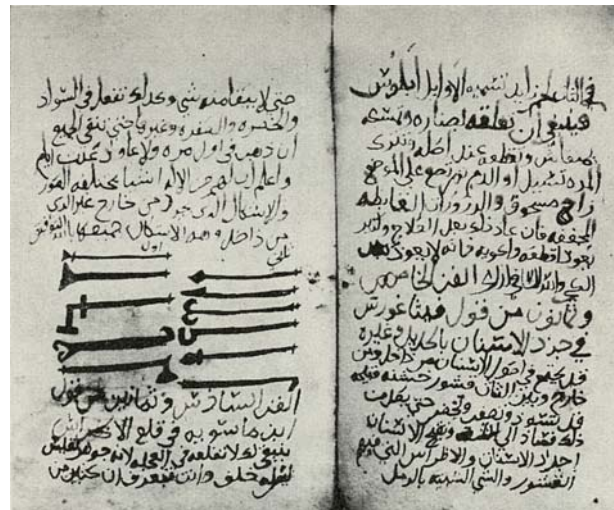 في اللثة لحم زايد تسميه الاوايل ابلوش
فينبغي ان تعلقه بصناره او تمسكه
بمنقاش وتقطعه عند اصله وتترك
المده تسيل او الدم ثم تضع على الموضع
زاج مسحوق او الذرورات القابضه
المجففه فان عاد ذلك بعد العلاج وكثير
يعود فاقطعه واكويه فانه لا يعود بعد
الكي
وثمانون من قول فيثاغورش
في جرد الاسنان بالحديد وغيره
قد يجتمع في اصول الاسنان من داخل ومن
خارج وبين اللثات قشور خشنه قبيحه
قد تسود وتصفر وتخضر حتى يصل من
ذلك فساد الى اللثه الاسنان
اجراد الاسنان والاظراس التي فيها
القشور والشي الشبيه بالرمل
حتى لا يبقا منه شي وكذلك تفعل في السواد
والخضره والصفره وغيرها حتى تنقى الجميع
ان ذهب في اول مره ولا عاودت عليه اليوم
واعلم ان الى اله اشيا مختلفه الصور
والاشكال الذي من خارج غير الذي
من داخل وهذه الاشكال
اول
ثاني
الفن السادس وثمانين من قول
ابن ماسويه في قلع الاضراس
ينبغي ان لا تقلعه في العجله لانه جوهر
خلق وانت تعرف ان كثير من